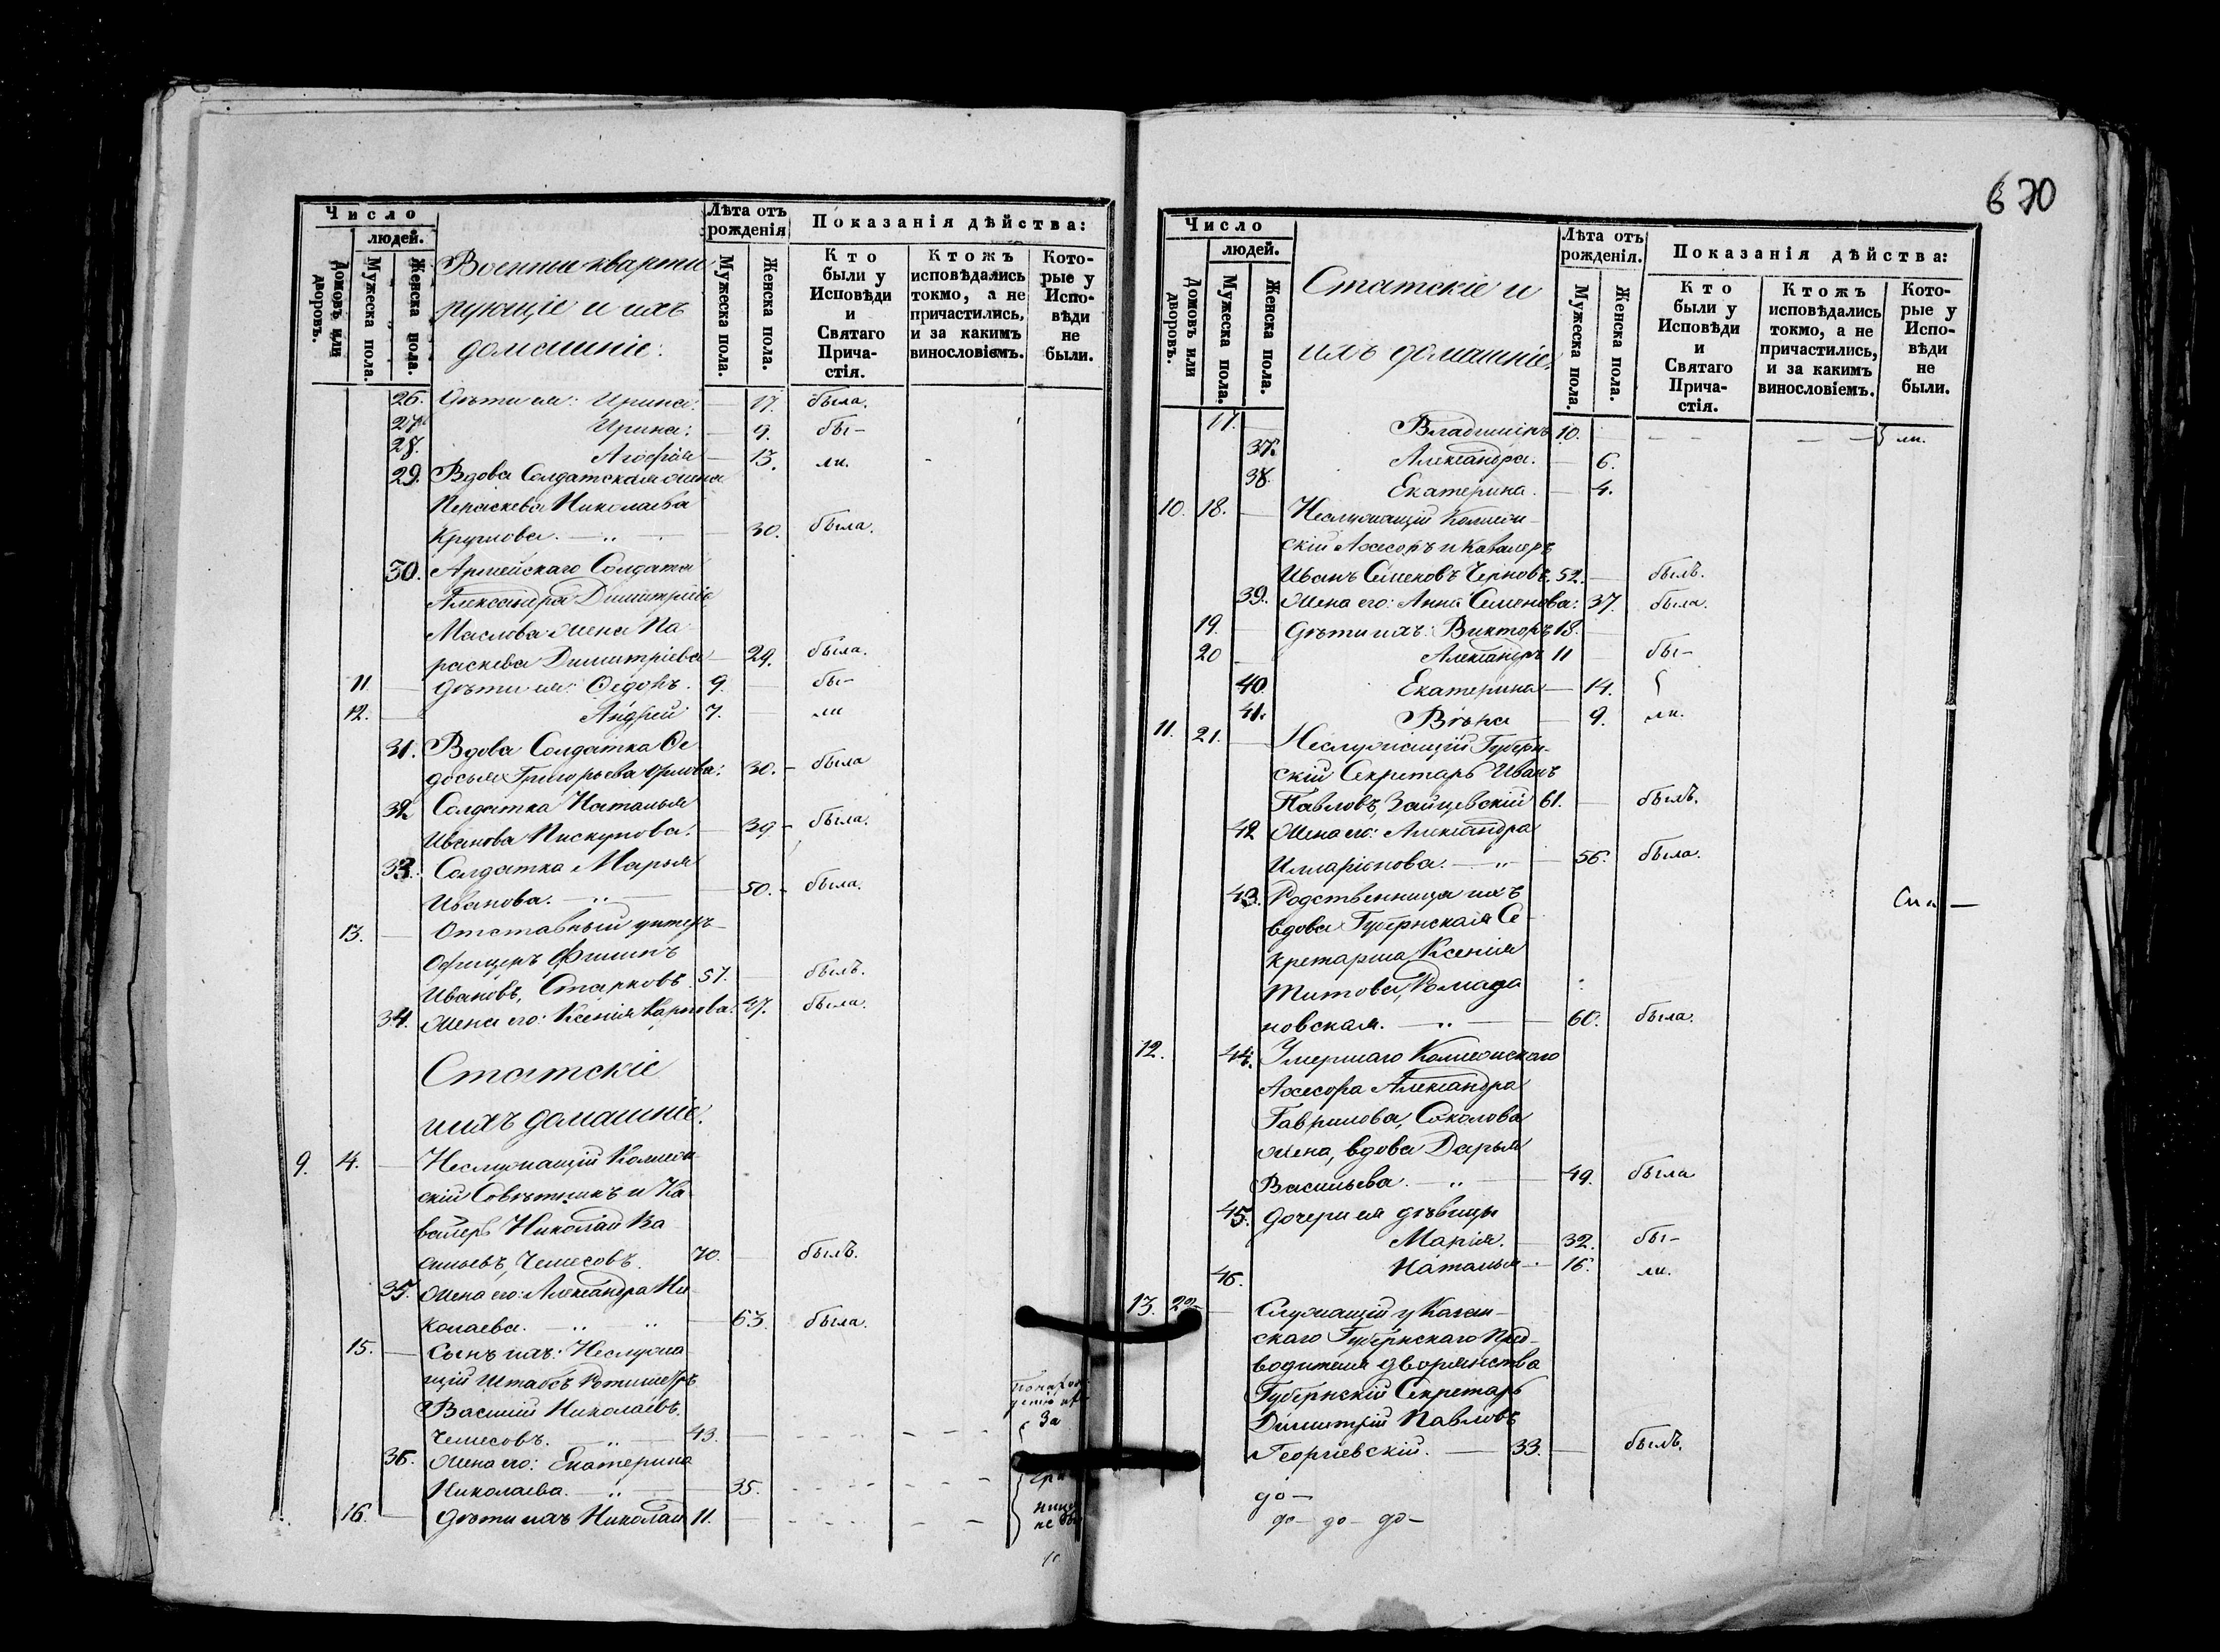 Число
людей.
Домовъ или дворовъ.
Мужеска пола.
Женска пола.
Военно квартирующіе и ихъ домашніе:
Лѣта отъ рожденія
Мужеска пола.
Женска пола.
Показанія дѣйства:
Кто были у Исповѣди и Святаго Причастія.
Ктожъ исповѣдались токмо, а не причастились, и за какимъ винословіемъ.
Которые у Исповѣди не были.
26. Дѣти ея: Ирина: — 17. была.
27. Ирина: — 9. бы-
28. Агафія — 13. ли.
29. Вдова Солдатская жена
Параскева Николаева
Круглова. — „ — 30. была.
30. Армейскаго Солдата
Александра Димитріева
Маслова жена Па-
раскева Димитріева — 29. была.
11. — Дѣти ея: Ѳедоръ. 9. — бы-
12. — Андрей 7. — ли
31. Вдова Солдатка Ѳе-
досья Григорьева Орлова: 30. - была
32 Солдатка Наталья
Иванова Пискунова. — 39 - была.
33. Солдатка Марья
Иванова. — „ — 50. - была.
13. — Отставный унтеръ-
Офицеръ Филипъ
Ивановъ, Старковъ. 57. — былъ.
34. Жена его: Ксенія Карпова. 47. была.
Статскіе
и ихъ домашніе.
9. 14. — Неслужащій Коллеж-
скій Совѣтникъ и Ка-
валеръ Николай Ва-
сильевъ, Чемесовъ. 70. — былъ.
35. Жена его: Александра Ни-
колаева. — „ — „ — 63. была.
15. — Сынъ ихъ: Неслужа-
щій Штабсъ Ротмистръ
Василій Николаевъ.
Чемесовъ. — „ — 43. —
За
36. Жена его: Екатерина
Николаева. — „ — 35.
16. — Дѣти ихъ Николай 11. —
не бы
670
Число
людей.
Домовъ или дворовъ.
Мужеска пола.
Женска пола.
Статскіе и
ихъ домашніе.
Лѣта отъ рожденія.
Мужеска пола.
Женска пола.
Показанія дѣйства:
Кто были у Исповѣди и Святаго Причастія.
Ктожъ исповѣдались токмо, а не причастились, и за какимъ винословіемъ.
Которые у Исповѣди не были.
17. — Владиміръ 10. — ли.
37. Александра. — 6.
38. Екатерина. — 4.
10. 18. — Неслужащій Коллеж-
скій Ассесоръ и Кавалеръ
Иванъ Семеновъ Черновъ. 52. — былъ.
39. Жена его: Анна Семенова: 37. была.
19. — Дѣти ихъ: Викторъ 18. —
20 — Александръ 11 — бы-
40. Екатерина — 14.
41. Вѣра — 9. ли.
11. 21. — Неслужащій Губерн-
скій Секретарь Иванъ
Павловъ, Зайцевскій 61. — былъ.
42 Жена его: Александра
Илларіонова. — „ — 56. была.
43. Родственница ихъ
вдова Губернская Се-
кретарша Ксенія
Титова, Ромада-
новская. — „ — 60. была.
12. 44. Умершаго Коллежскаго
Ассесора Александра
Гаврилова, Соколова
жена, вдова Дарья
Васильева. — „ — 49. была
45. Дочери ея дѣвицы
Марія. — 32. бы-
46. Наталья - 16. ли.
13. 22 — Служащій у Казан-
скаго Губернскаго Пред-
водителя дворянства
Губернскій Секретарь
Димитрій Павловъ
Георгіевскій. — 33. — былъ.
до —
до — до — до —